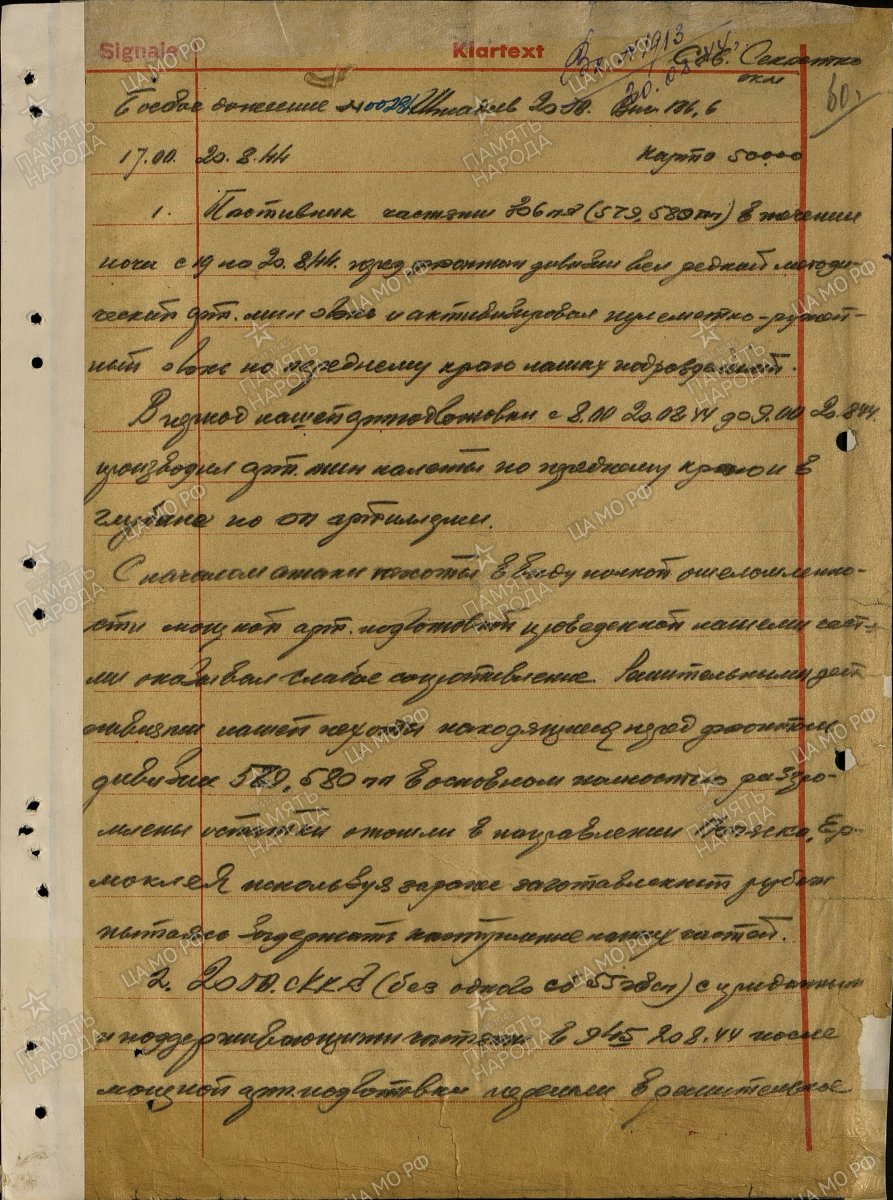 Signale Klartext
Вх № 1913
20.08.44
Сов. Секретно
экз
60
Боевое донесение №0029 Штадив 20 Выс 176,6
17.00. 20.8.44 Карта 50000
1. Противник частями 306 пд (579, 580 пп) в течении
ночи с 19 на 20.8.44. перед фронтом дивизии вел редкий методи-
ческий арт. мин огонь и активизировал пулеметно-ружей-
ный огонь по переднему краю наших подразделений.
В период нашей артподготовки с 8.00 20.08.44 до 9.00 20.8.44.
производил арт. мин налеты по переднему краю и в
глубине по оп артиллерии.
С началом атаки пехоты в виду полной ошеломленно-
сти мощной арт. подготовкой проведенной нашими частя-
ми оказывал слабое сопротивление. Решительными дей
ствиями нашей пехоты находящиеся перед фронтом
дивизии 579, 580 пп в основном полностью разгро-
млены остатки отошли в направлении Ер-
моклея используя заранее заготавленный рубеж
пытаясь задержать наступление наших частей.
2. 20 (без одного сб 55 гвсп) с приданными
и поддерживающими частями в 9 45 20.8.44 после
мощной арт. подготовки перешли в решительное
ПАМЯТЬ НАРОДА
ЦА МО РФ